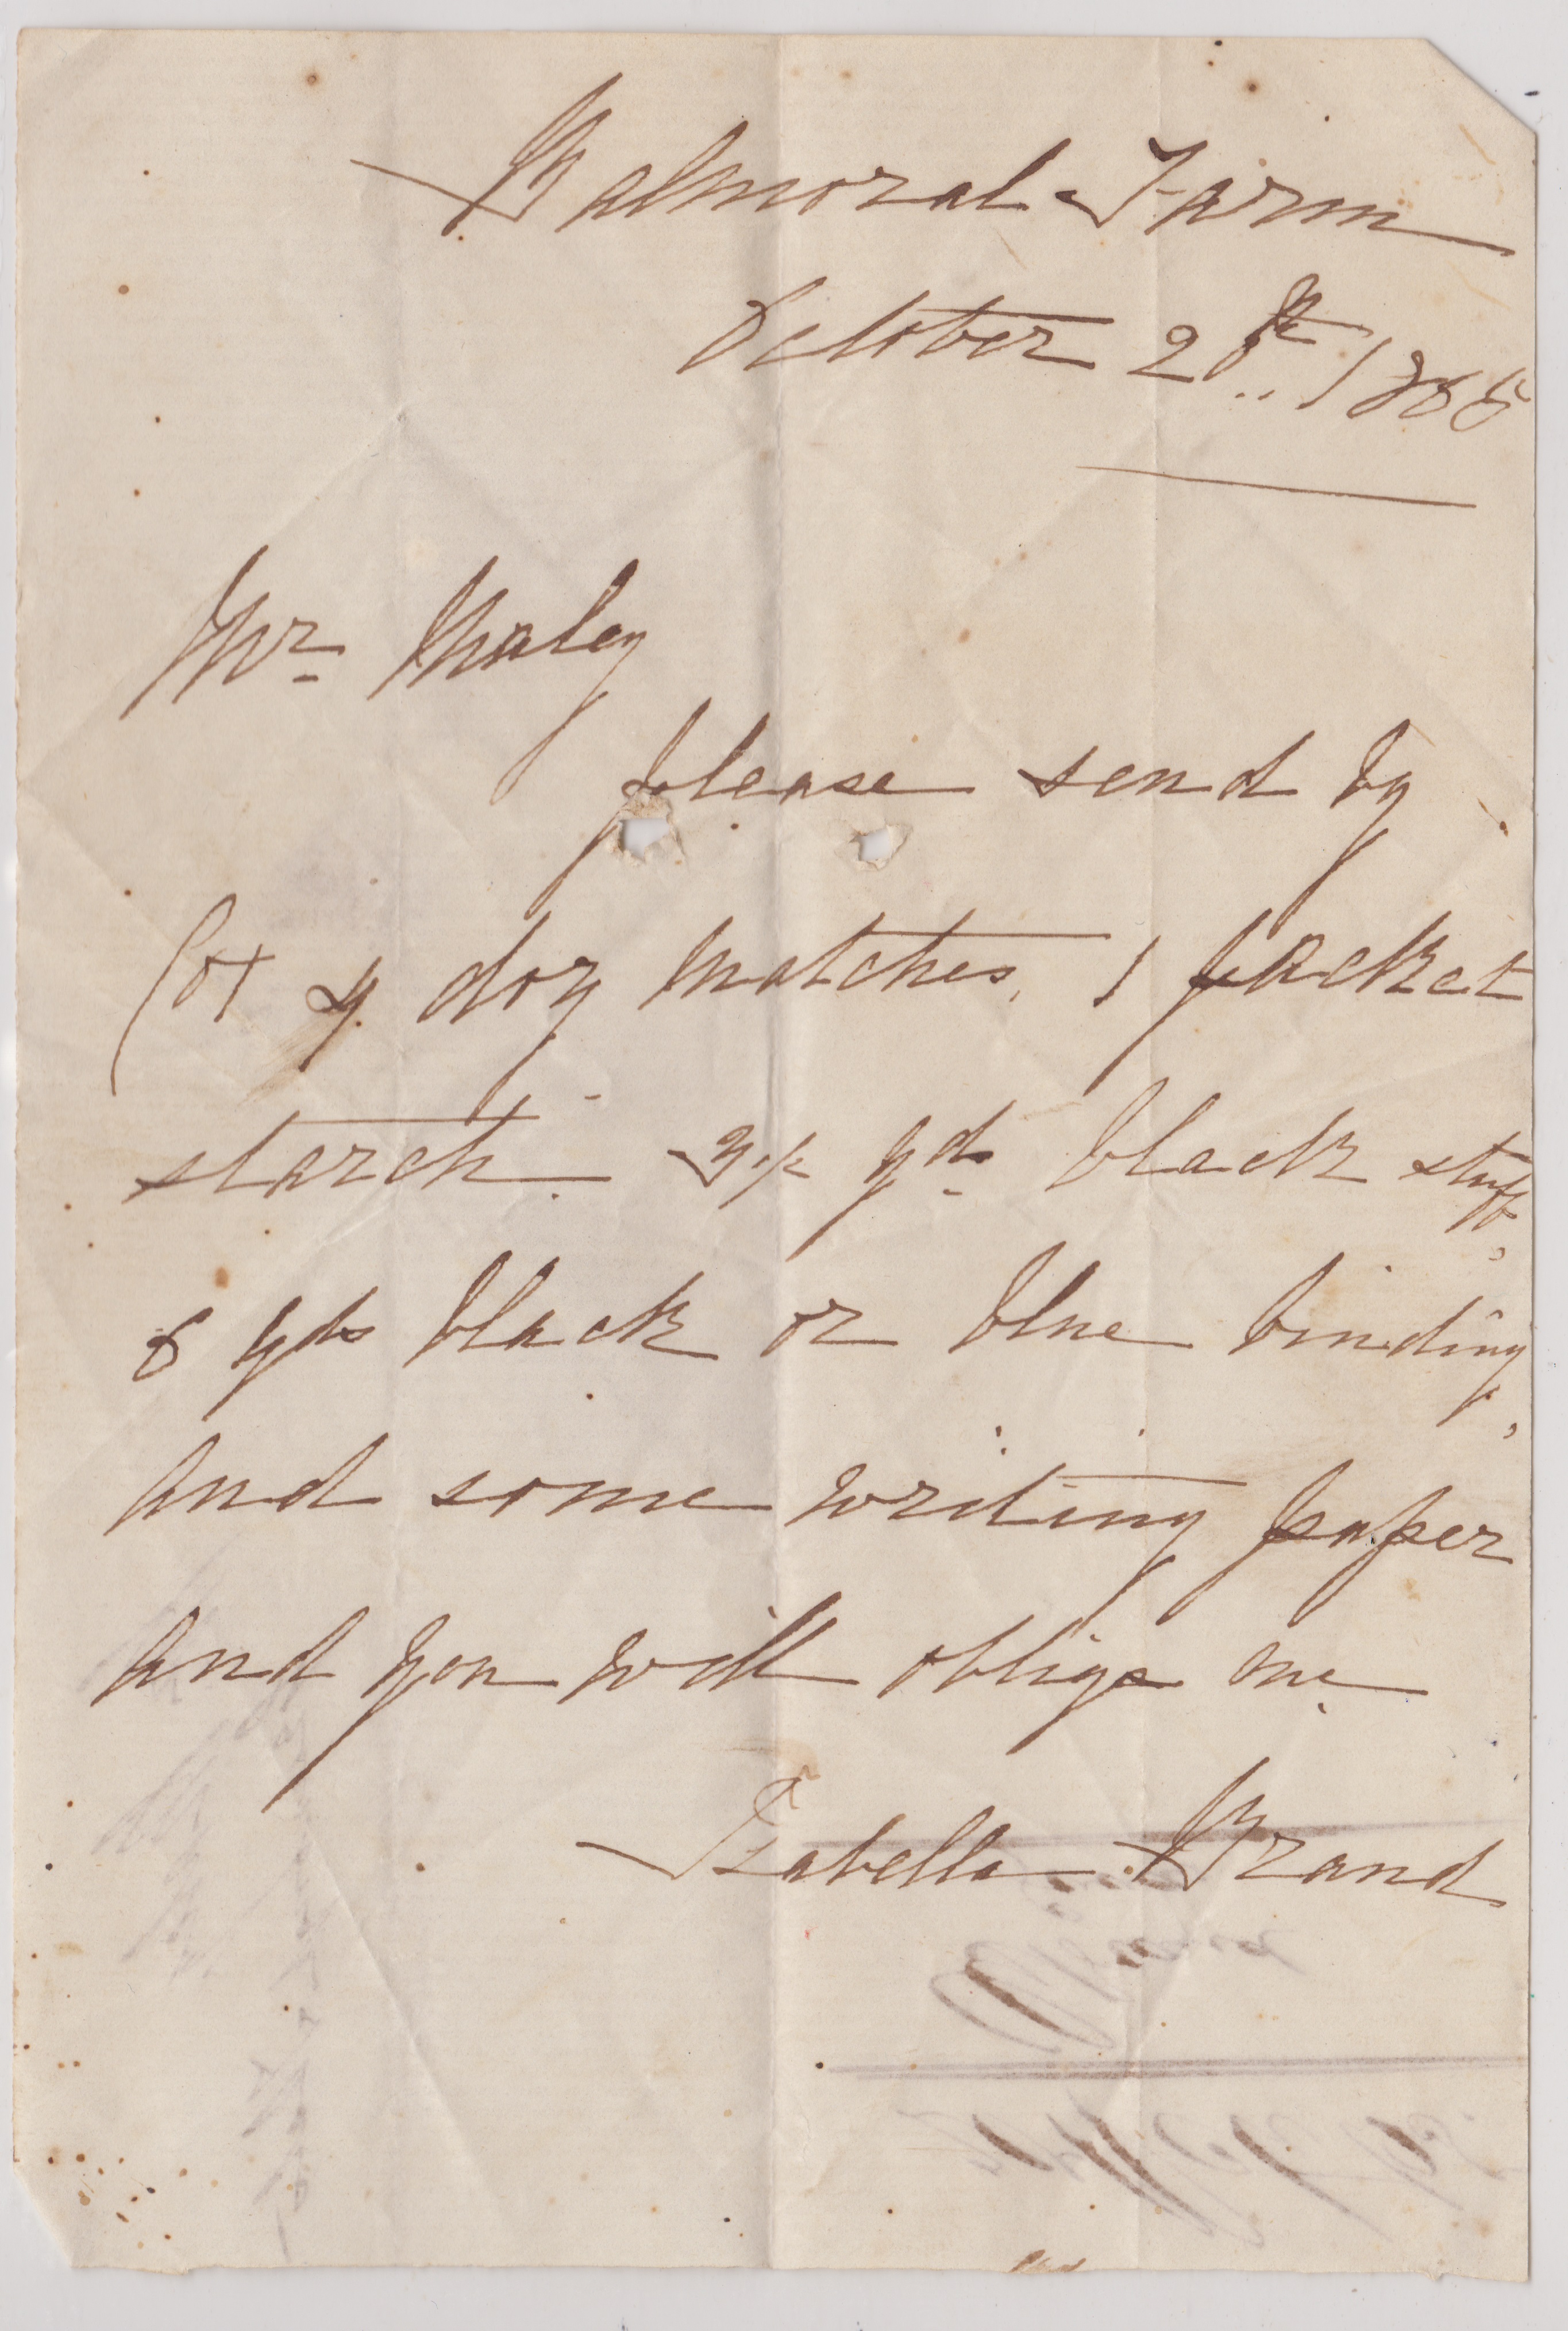 Balmoral Farm
October 26th 1865
Mr Maley
please send by
Cox ½ doz matches, 1 packet
starch. 3½ yds black stuff,
6 yds black or blue binding,
and some writing paper
and you will oblige me
Isabella Brand